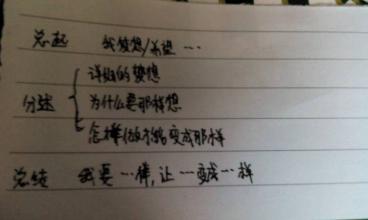 总起 我梦想/希望…
详细的梦想
分述 为什么要那样想
怎样做才能变成那样
总结 我要…棒,让…变成…样